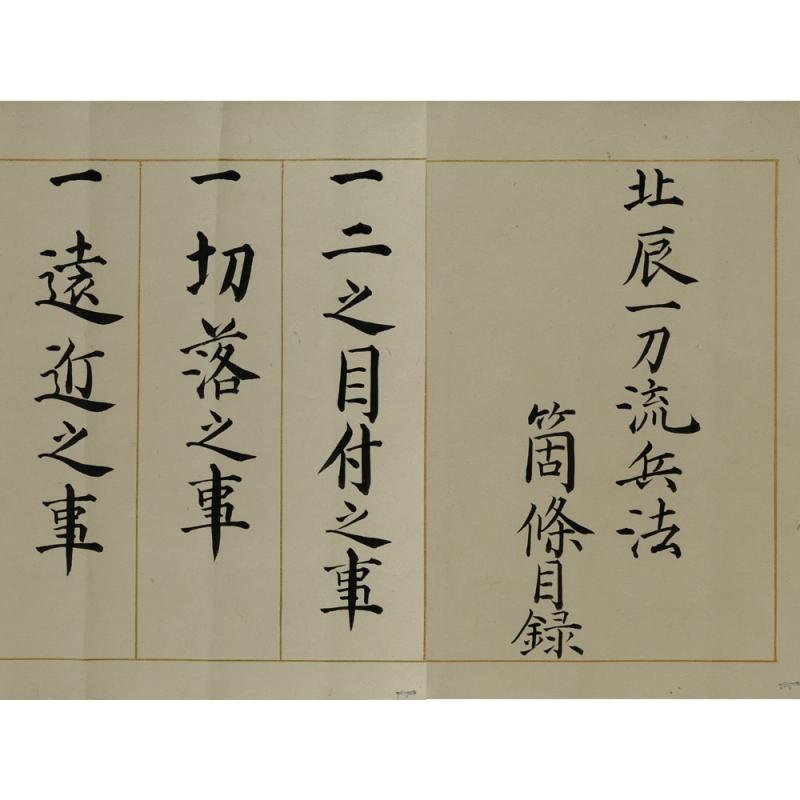 北辰一刀流兵法
箇條目録
一二之目付之事
一切落之事
一遠近之事